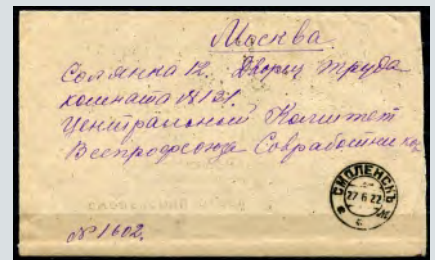 Москва
Солянка 12. Дворец труда
комната № 121
Центральный Комитет
Всепрофсоюза Совработников
СМОЛЕНСКЪ
27 6 22
№ 1602.